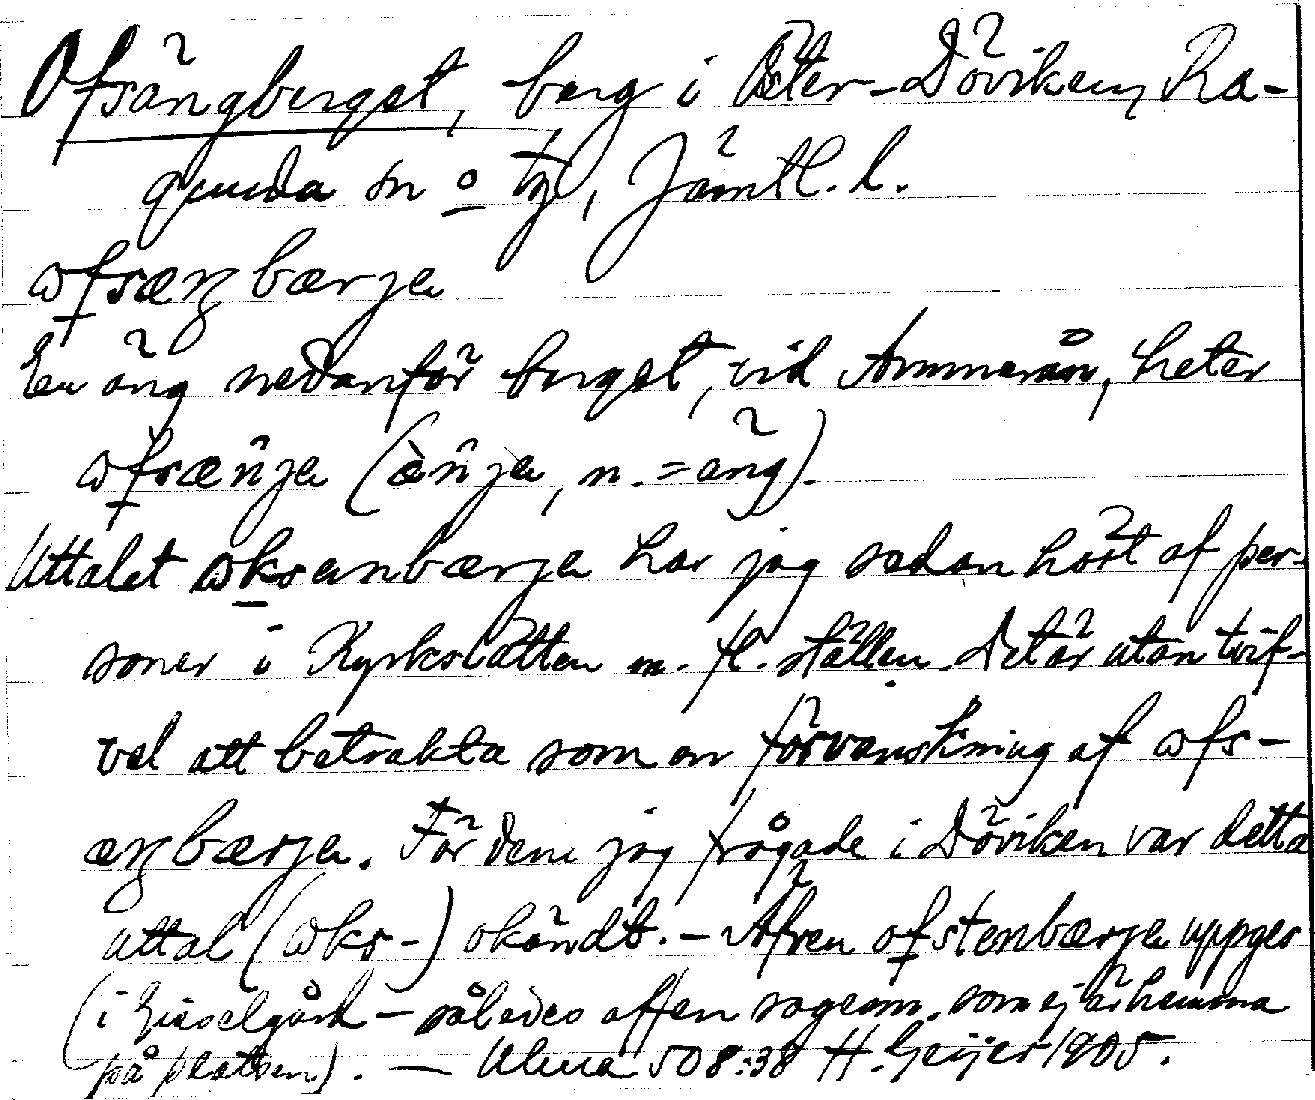 Ofsängberget, berg i Öster-Döviken, Ra-
gunda sn o tg, Jämtl. l.
ωfsæŋbærjɐ
En äng nedanför berget, vid Ammerån, heter
ωfsænjɐ (ænjɐ, n. = äng).
Uttalet ωksɐnbærjɐ har jag sedan hört af per-
soner i Kyrkslätten m. fl. ställen. Det är utan tvif-
vel att betrakta som en förvanskning af ωfs-
æŋbærjɐ. För dem jag frågade i Döviken var detta
uttal (ωks-) okändt. – Äfven ofstenbærjɐ uppges
(i Gisselgård – således af en sagesm. som ej är hemma
på platsen). — Ulma 508:38 H. Geijer 1905.